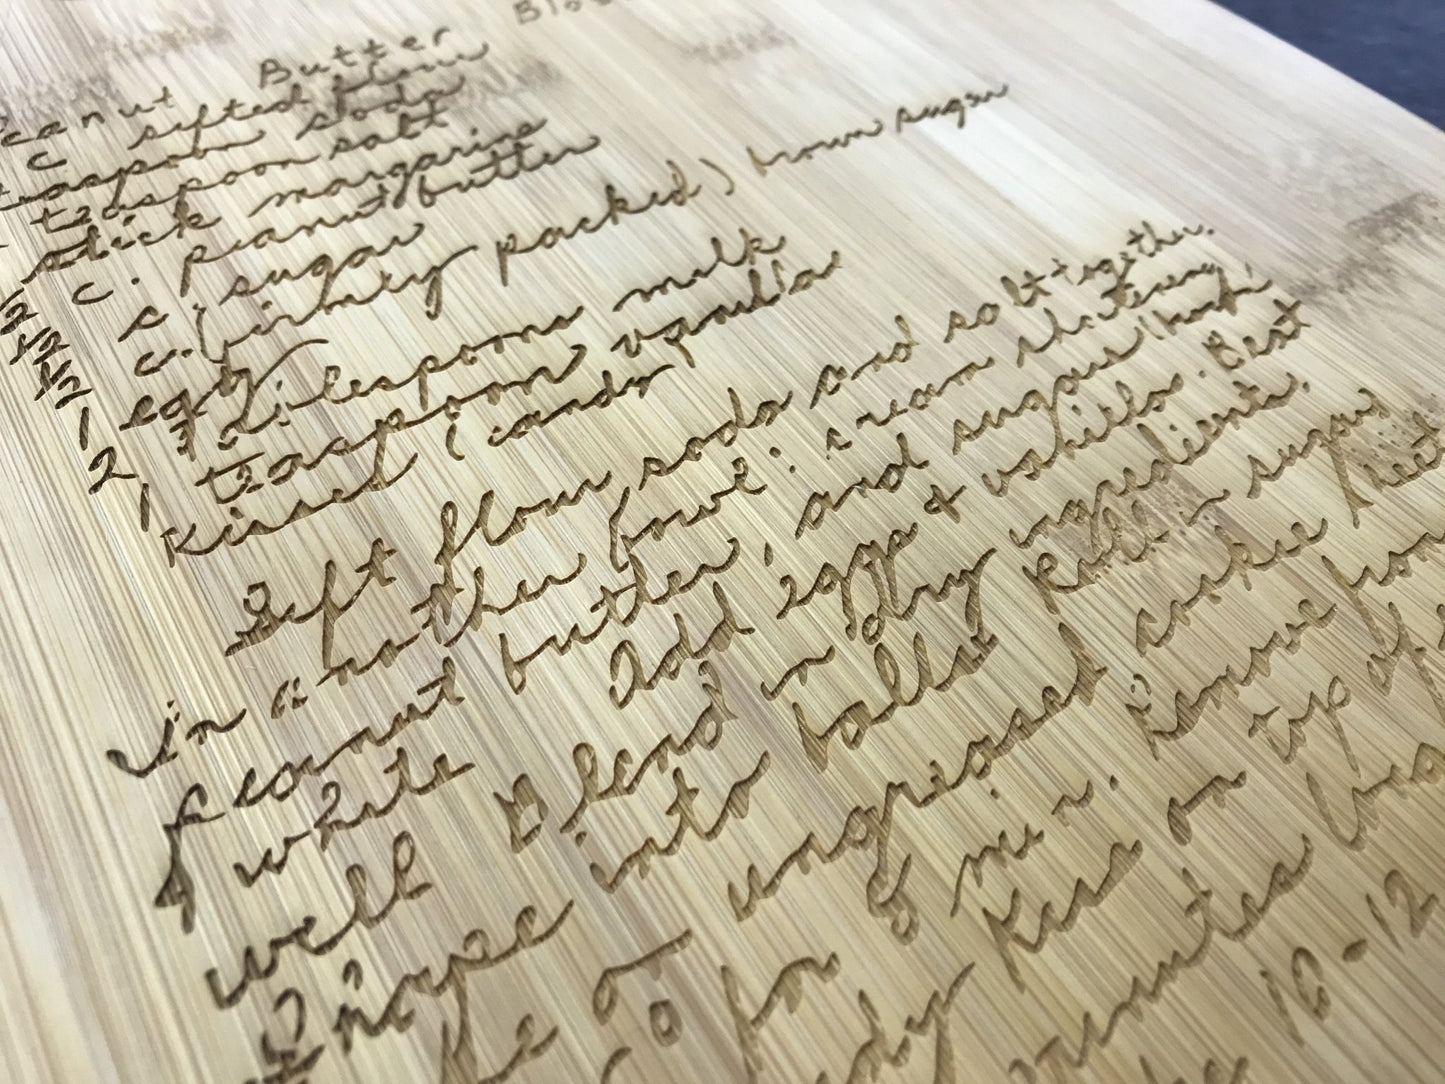 Peanut Butter Blo
c sifted flour
teaspoon soda
teaspoon salt
stick margarine
1/2 c. peanut butter
1/2 c. sugar
1/2 c. (firmly packed) brown sugar
1 egg
2 tablespoons milk
1 teaspoon vanilla
Kisses (candy
Sift flour soda and salt together.
in another bowl: cream shortening,
peanut butter, and sugars (brown
& white Add eggs + vanilla. Beat
well Blend in dry ingredients.
Shape into balls. Roll in sugar
ungreased cookie sheet
for 8 min. Remove from
candy Kiss on top of
minutes
10-12